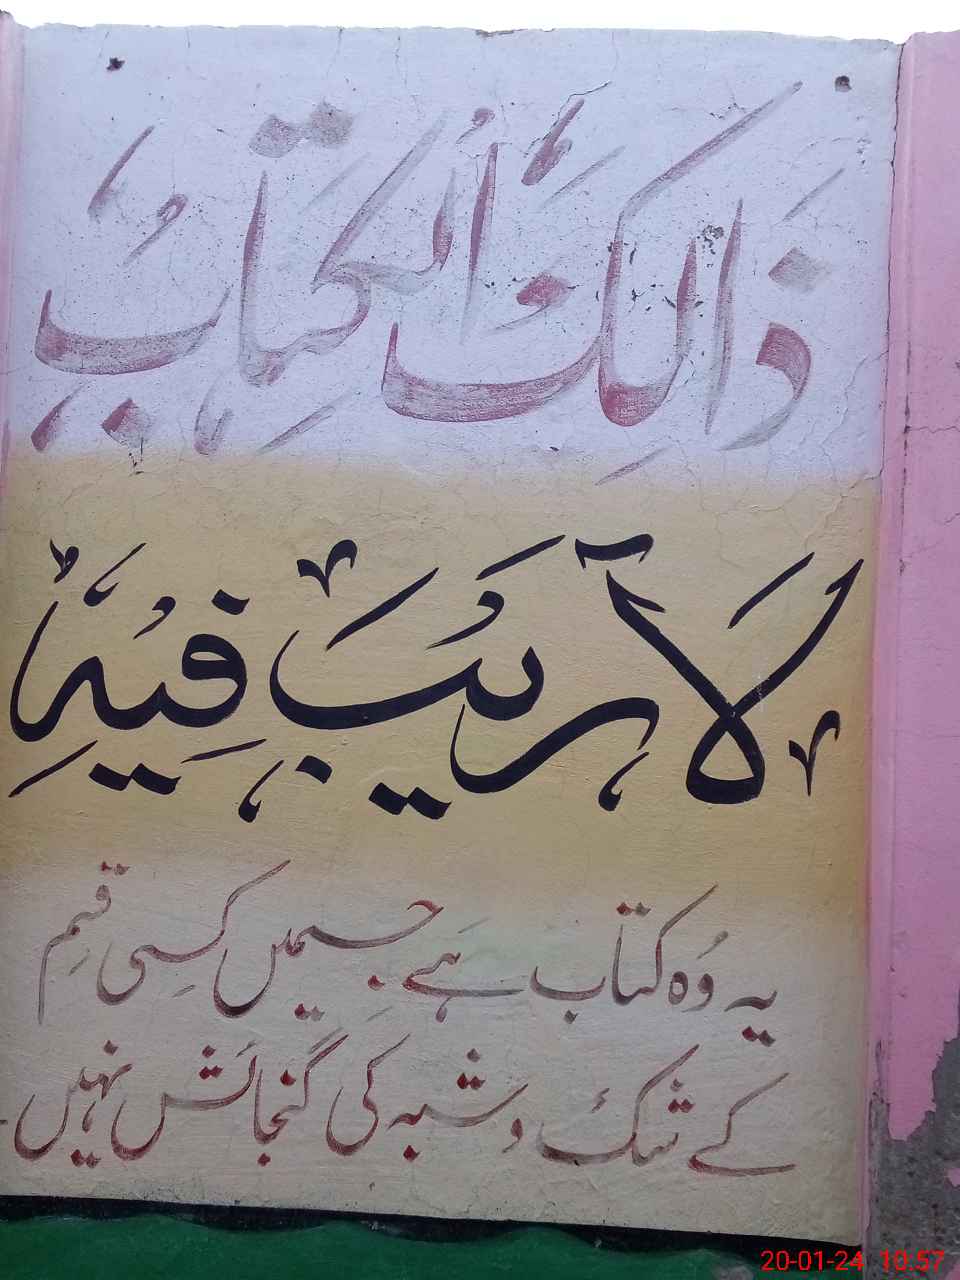 ذَالِكَ الْكِتَابُ
لَا رَيْبَ فِيْهِ
یہ وُہ کتاب ہَے جسمیں کِسی قِسم
کے شک و شبہ کی گنجائش نہیں
20-01-24 10:57